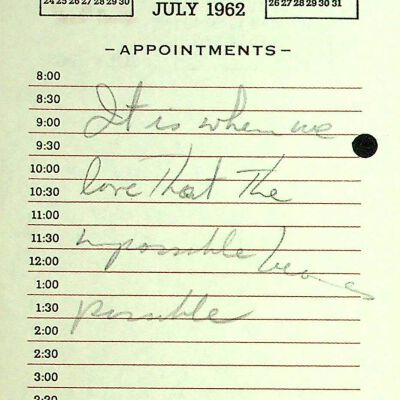 24 25 26 27 28 29 30
26 27 28 29 30 31
JULY 1962
– APPOINTMENTS –
8:00
8:30
9:00 It is when we
9:30
10:00
10:30 love that the
11:00
11:30 impossible becomes
12:00
1:00
1:30 possible
2:00
2:30
3:00
3:30